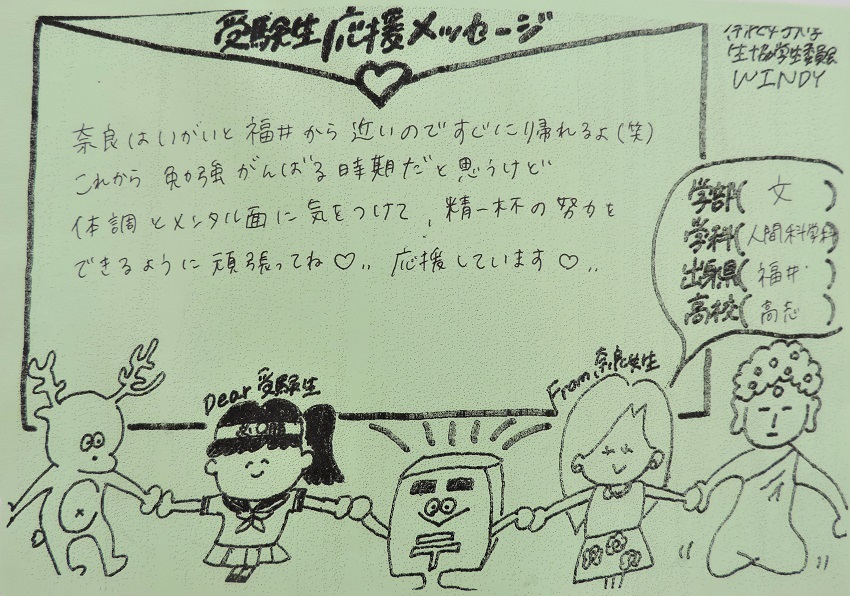 受験生応援メッセージ
生協学生委員会
WINDY
奈良はいがいと福井から近いのですぐに帰れるよ(笑)
これから勉強がんばる時期だと思うけど
体調とメンタル面に気をつけて、精一杯の努力を
できるように頑張ってね♡‥ 応援しています♡‥
学部(文)
学科(人間科学科)
出身県(福井)
高校(高志)
Dear 受験生
From 奈良女生